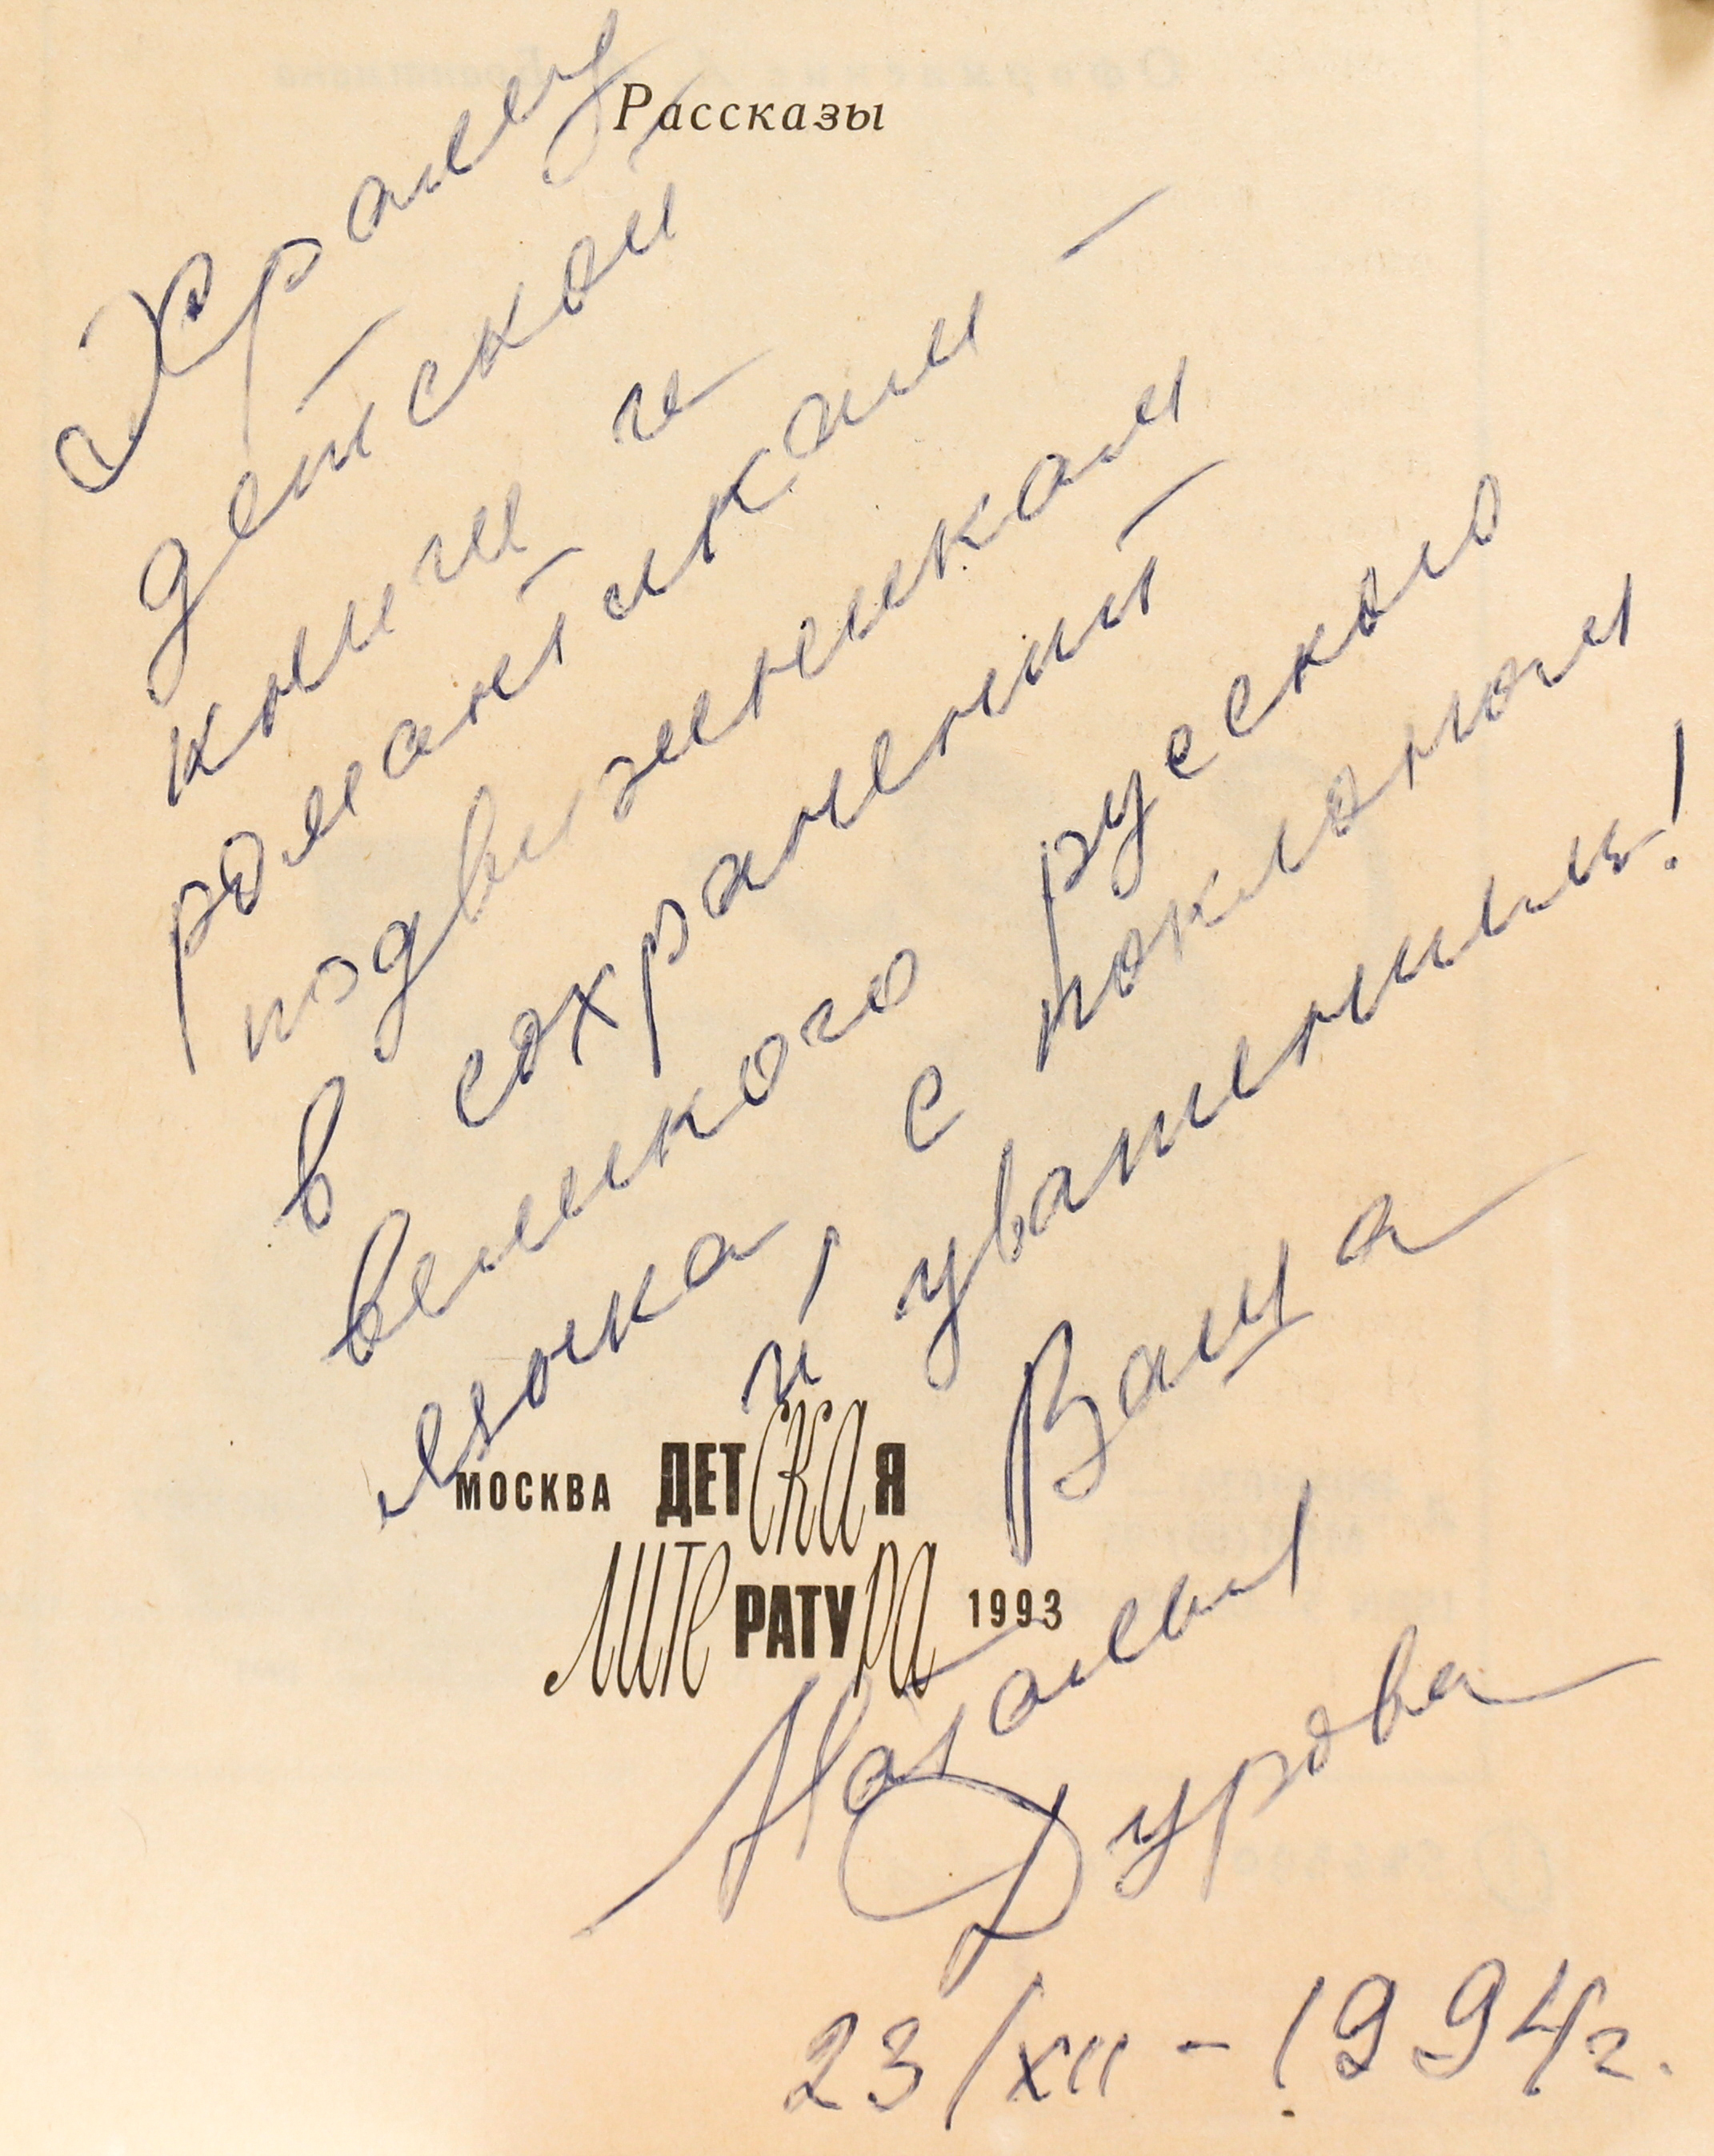 Рассказы
Храму
детской
книги и
романтикам –
подвижникам
в сохранении
великого русского
языка, с поклоном
и уважением!
Ваша
Наталья
Дурова
23/XII – 1994 г.
МОСКВА ДЕТСКАЯ
ЛИТЕРАТУРА 1993